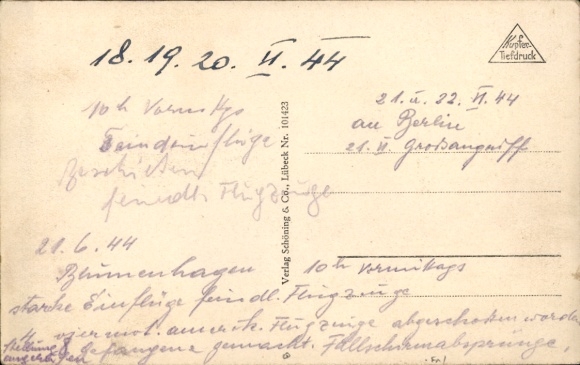 18. 19. 20. VI. 44
Kupfer-
Tiefdruck
10 h Vormittgs
Feindeinflüge
Beschießen
feindl. Flugzeuge
21. u. 22. VI. 44
an Berlin
21. VI. Großangriff
Verlag Schöning & Co., Lübeck Nr. 101423
21. 6. 44
Blumenhagen 10 h Vormittags
starke Einflüge feindl. Flugzeuge
4 viermot. amerik. Flugzeuge abgeschossen worden
8 Gefangene gemacht. Fallschirmabsprünge.